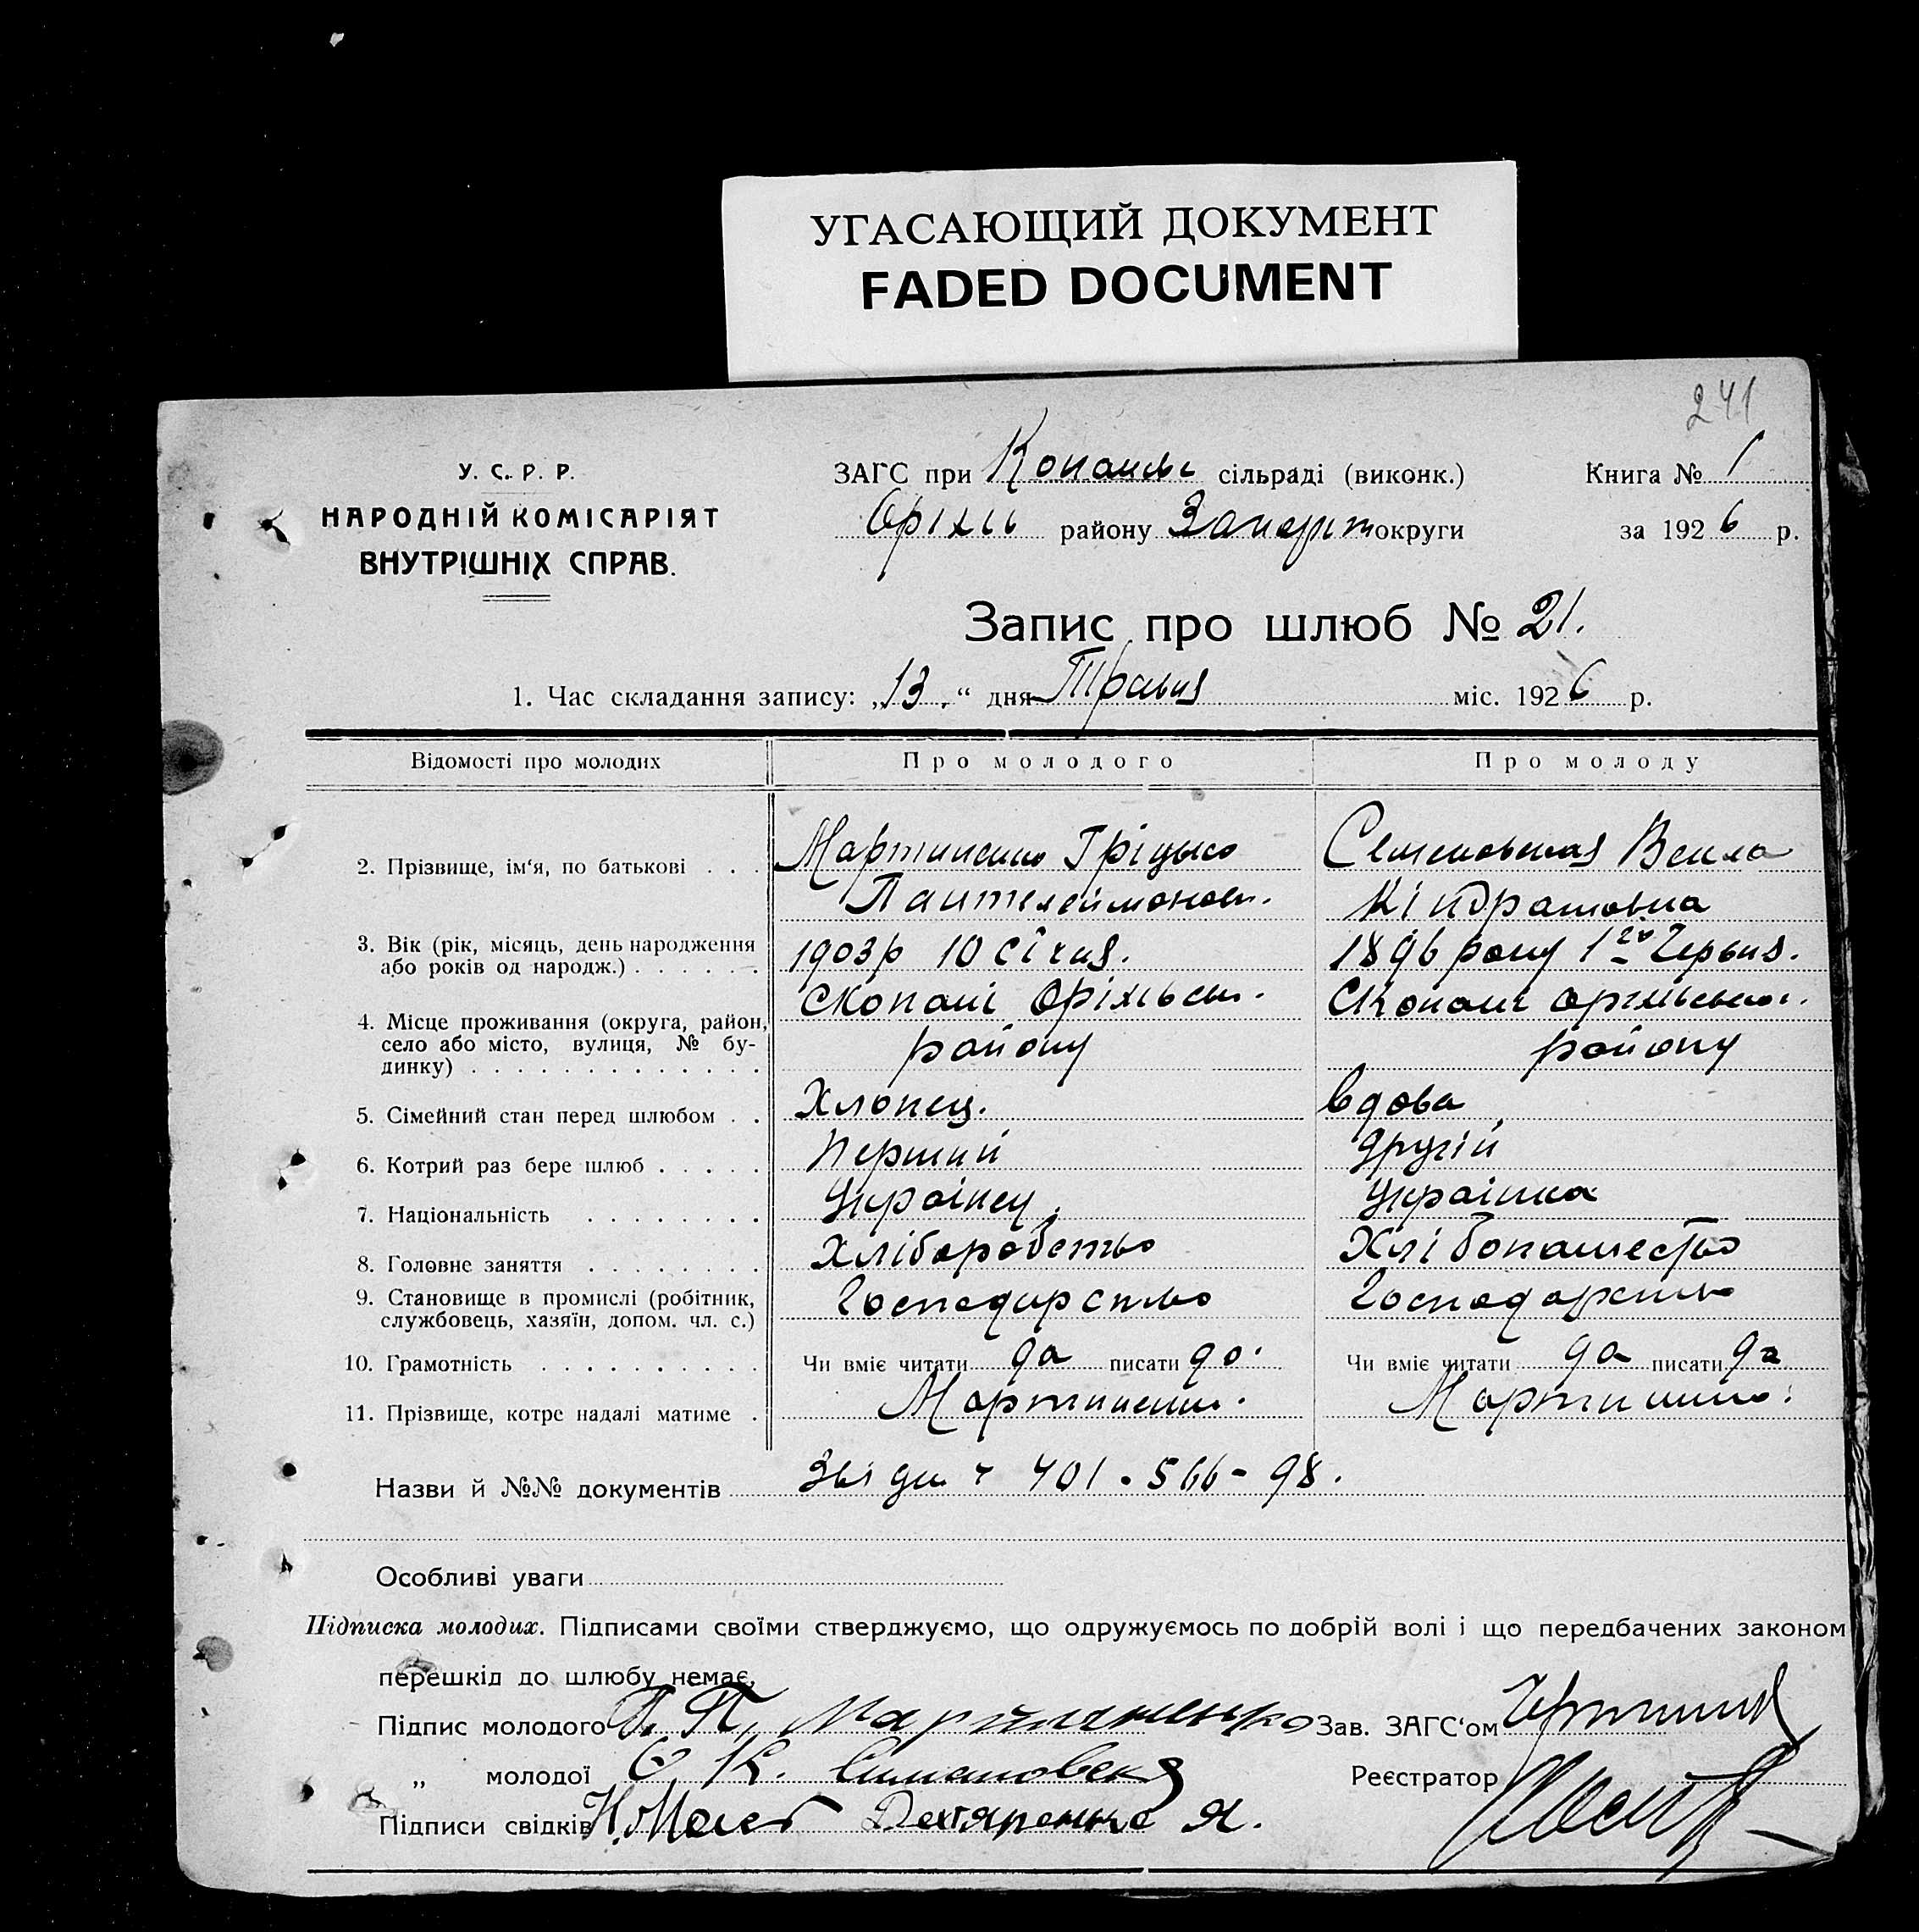 УГАСАЮЩИЙ ДОКУМЕНТ
FADED DOCUMENT
241
У. С. Р. Р.
НАРОДНІЙ КОМІСАРІЯТ
ВНУТРІШНІХ СПРАВ.
ЗАГС при Копанів сільраді (виконк.)
Оріхів району Запоріж округи
Книга № 1
за 1926 р.
Запис про шлюб № 21.
1. Час складання запису: „13.“ дня Травня міс. 1926 р.
Відомості про молодих
Про молодого
Про молоду
2. Прізвище, ім‘я, по батькові . . .
Мартиненко Гріцько
Пантелеймонов.
Семеновская Векла
Кіндратовна
3. Вік (рік, місяць, день народження
або років од народж.) . . . . . .
1903р 10 січня.
1896 року 1го Червня.
4. Місце проживання (округа, район,
село або місто, вулиця, № бу-
динку) . . . . . . . . . . . . .
С Копані Оріхівськ.
району
С Копані Оріхівської.
району
5. Сімейний стан перед шлюбом . .
Хлопец.
вдова
6. Котрий раз бере шлюб . . . . .
Перший
другій
7. Національність . . . . . . . .
Українец.
Українка
8. Головне заняття . . . . . . . .
Хліборобство
Хлібопашество
9. Становище в промислі (робітник,
службовець, хазяїн, допом. чл. с.)
Господарство
Господарство
10. Грамотність . . . . . . . . . .
Чи вміє читати да писати да.
Чи вміє читати да писати да
11. Прізвище, котре надалі матиме .
Мартиненко.
Мартиненко.
Назви й №№ документів 401 . 566 - 98.
Особливі уваги
Підписка молодих. Підписами своїми стверджуємо, що одружуємось по добрій волі і що передбачених законом
перешкід до шлюбу немає.
Підпис молодого Мартиненько
Зав. ЗАГС‘ом
„ молодої К. Симановска
Реєстратор
Підписи свідків Дехтяренко Я.